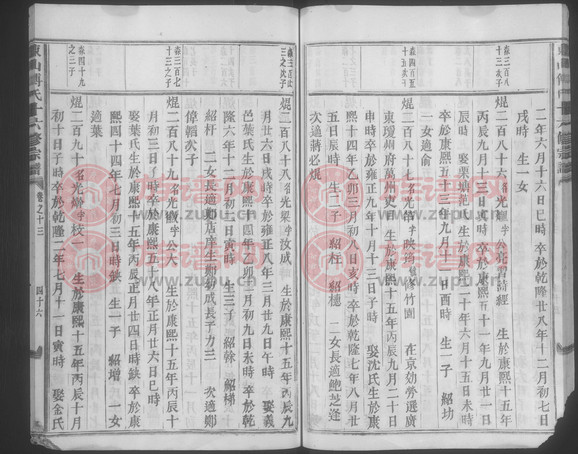 二年六月十六日巳時 卒於乾隆廿八年十二月初七日
戌時 生一女
森三百八十三次子
焜二百八十六 名光 字公 習詩經 生於康熙十五年
丙辰九月十三日寅時 卒於康熙五十一年九月廿一日
辰時 娶栗塘范氏 生於康熙 六年十月十五日未時
卒於康熙五十三年九月十一日酉時 生一子 紹功
一女適俞
森四百五十五次子
焜二百八十七 名光 字映 號竹圃 在京効勞選廣
東瓊州府萬州吏目 生於康熙十五年丙辰九月二十日
申時 卒於雍正九年十月十三日子時 娶沈氏 生於康
熙十四年乙卯三月初八日亥時 卒於乾隆七年八月廿
五日辰時 生二子 紹 紹穗 二女長適鮑芝逢
次適蔣必焜
焜二百八十八 名光 字汝成 生於康熙十五年丙辰九
月廿六日戌時 卒於雍正八年三月廿九日午時 娶義
邑葉氏 生於康熙十四年乙卯十一月初九日未時 卒於乾
隆六年十二月初二日寅時 生三子 紹幹 紹梯
紹杆 二女長適鄭店庠生鄭 成長子力三 次適鄭
倬 次子
森三百七十三之子
焜二百八十九 名光 字公六 生於康熙十五年丙辰十
月初三日子時 卒於康熙五十八年正月廿六日巳時
娶葉氏 生於康熙十五年丙辰正月廿四日時缺 卒於康
熙四十四年七月初三日時缺 生一子 紹增 一女
適葉
森四十九之三子
焜二百九十 名光 字校一 生於康熙十五年丙辰十月
初十日子時 卒於乾隆二年七月十一日寅時 娶金氏
東山傅氏十六修宗譜
卷之十三
四十六
族譜網
www.zupu.cn